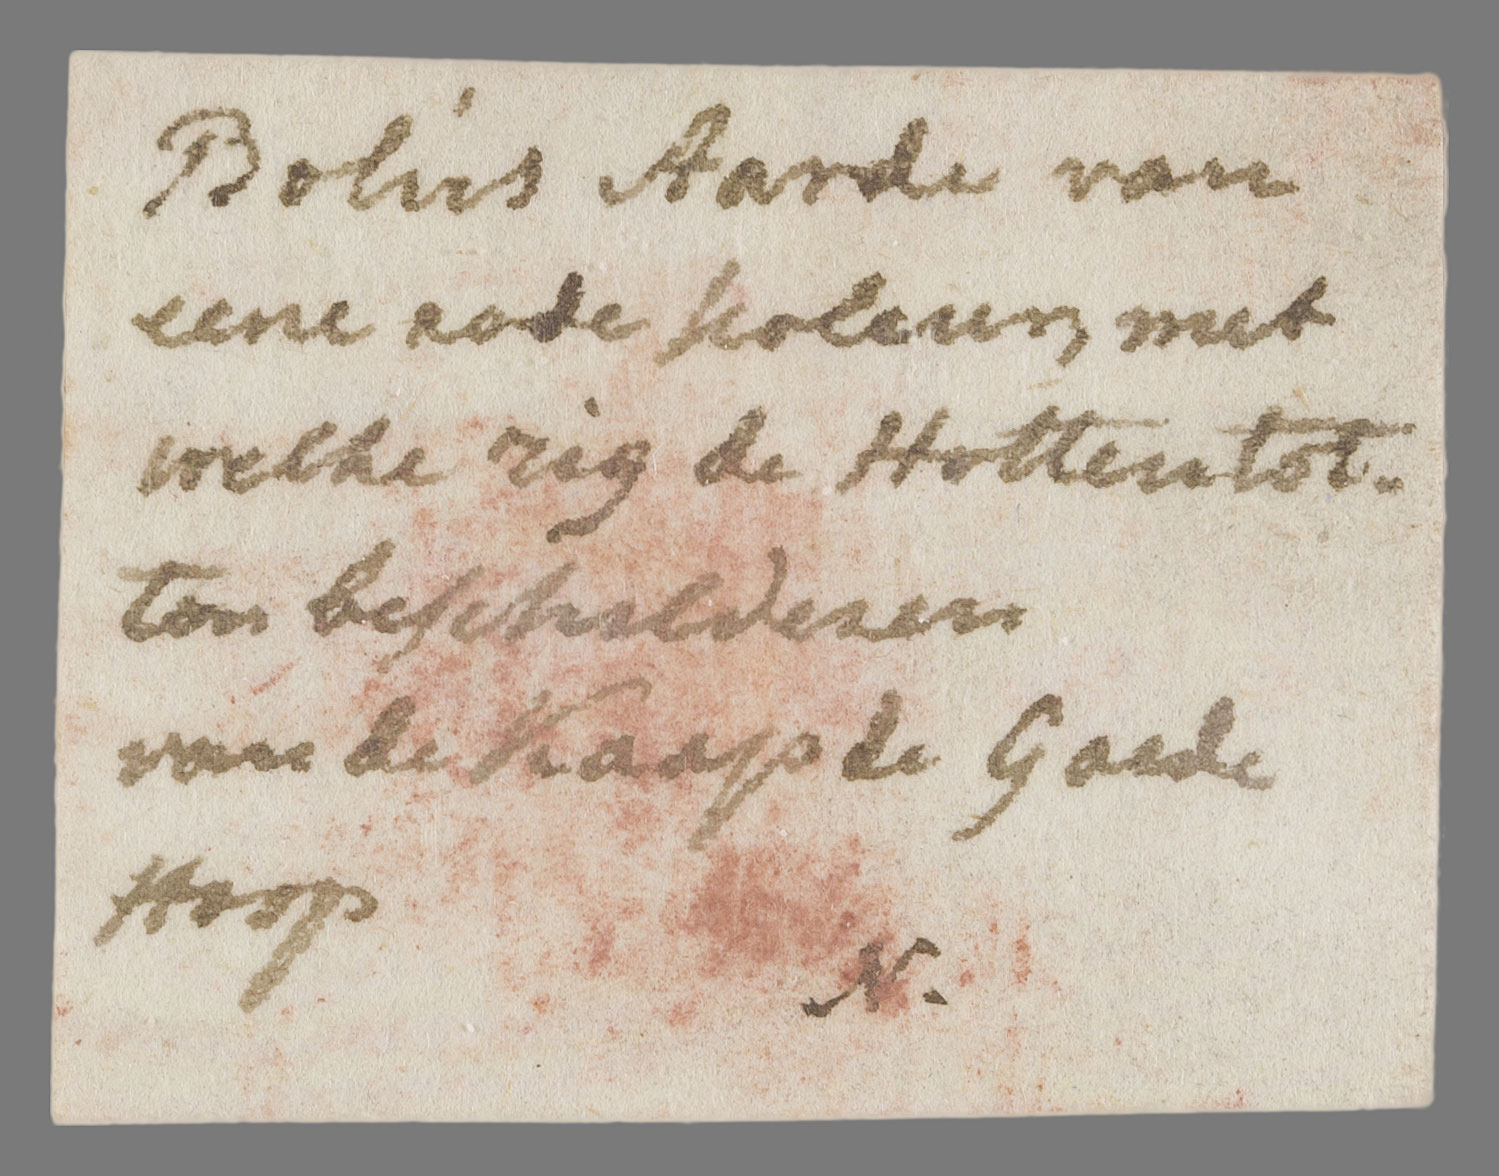 Bolus Aarde van
eene rode koleur, met
welke zig de Hottentot-
ten beschilderen
van de Kaap de Goede
Hoop
N.